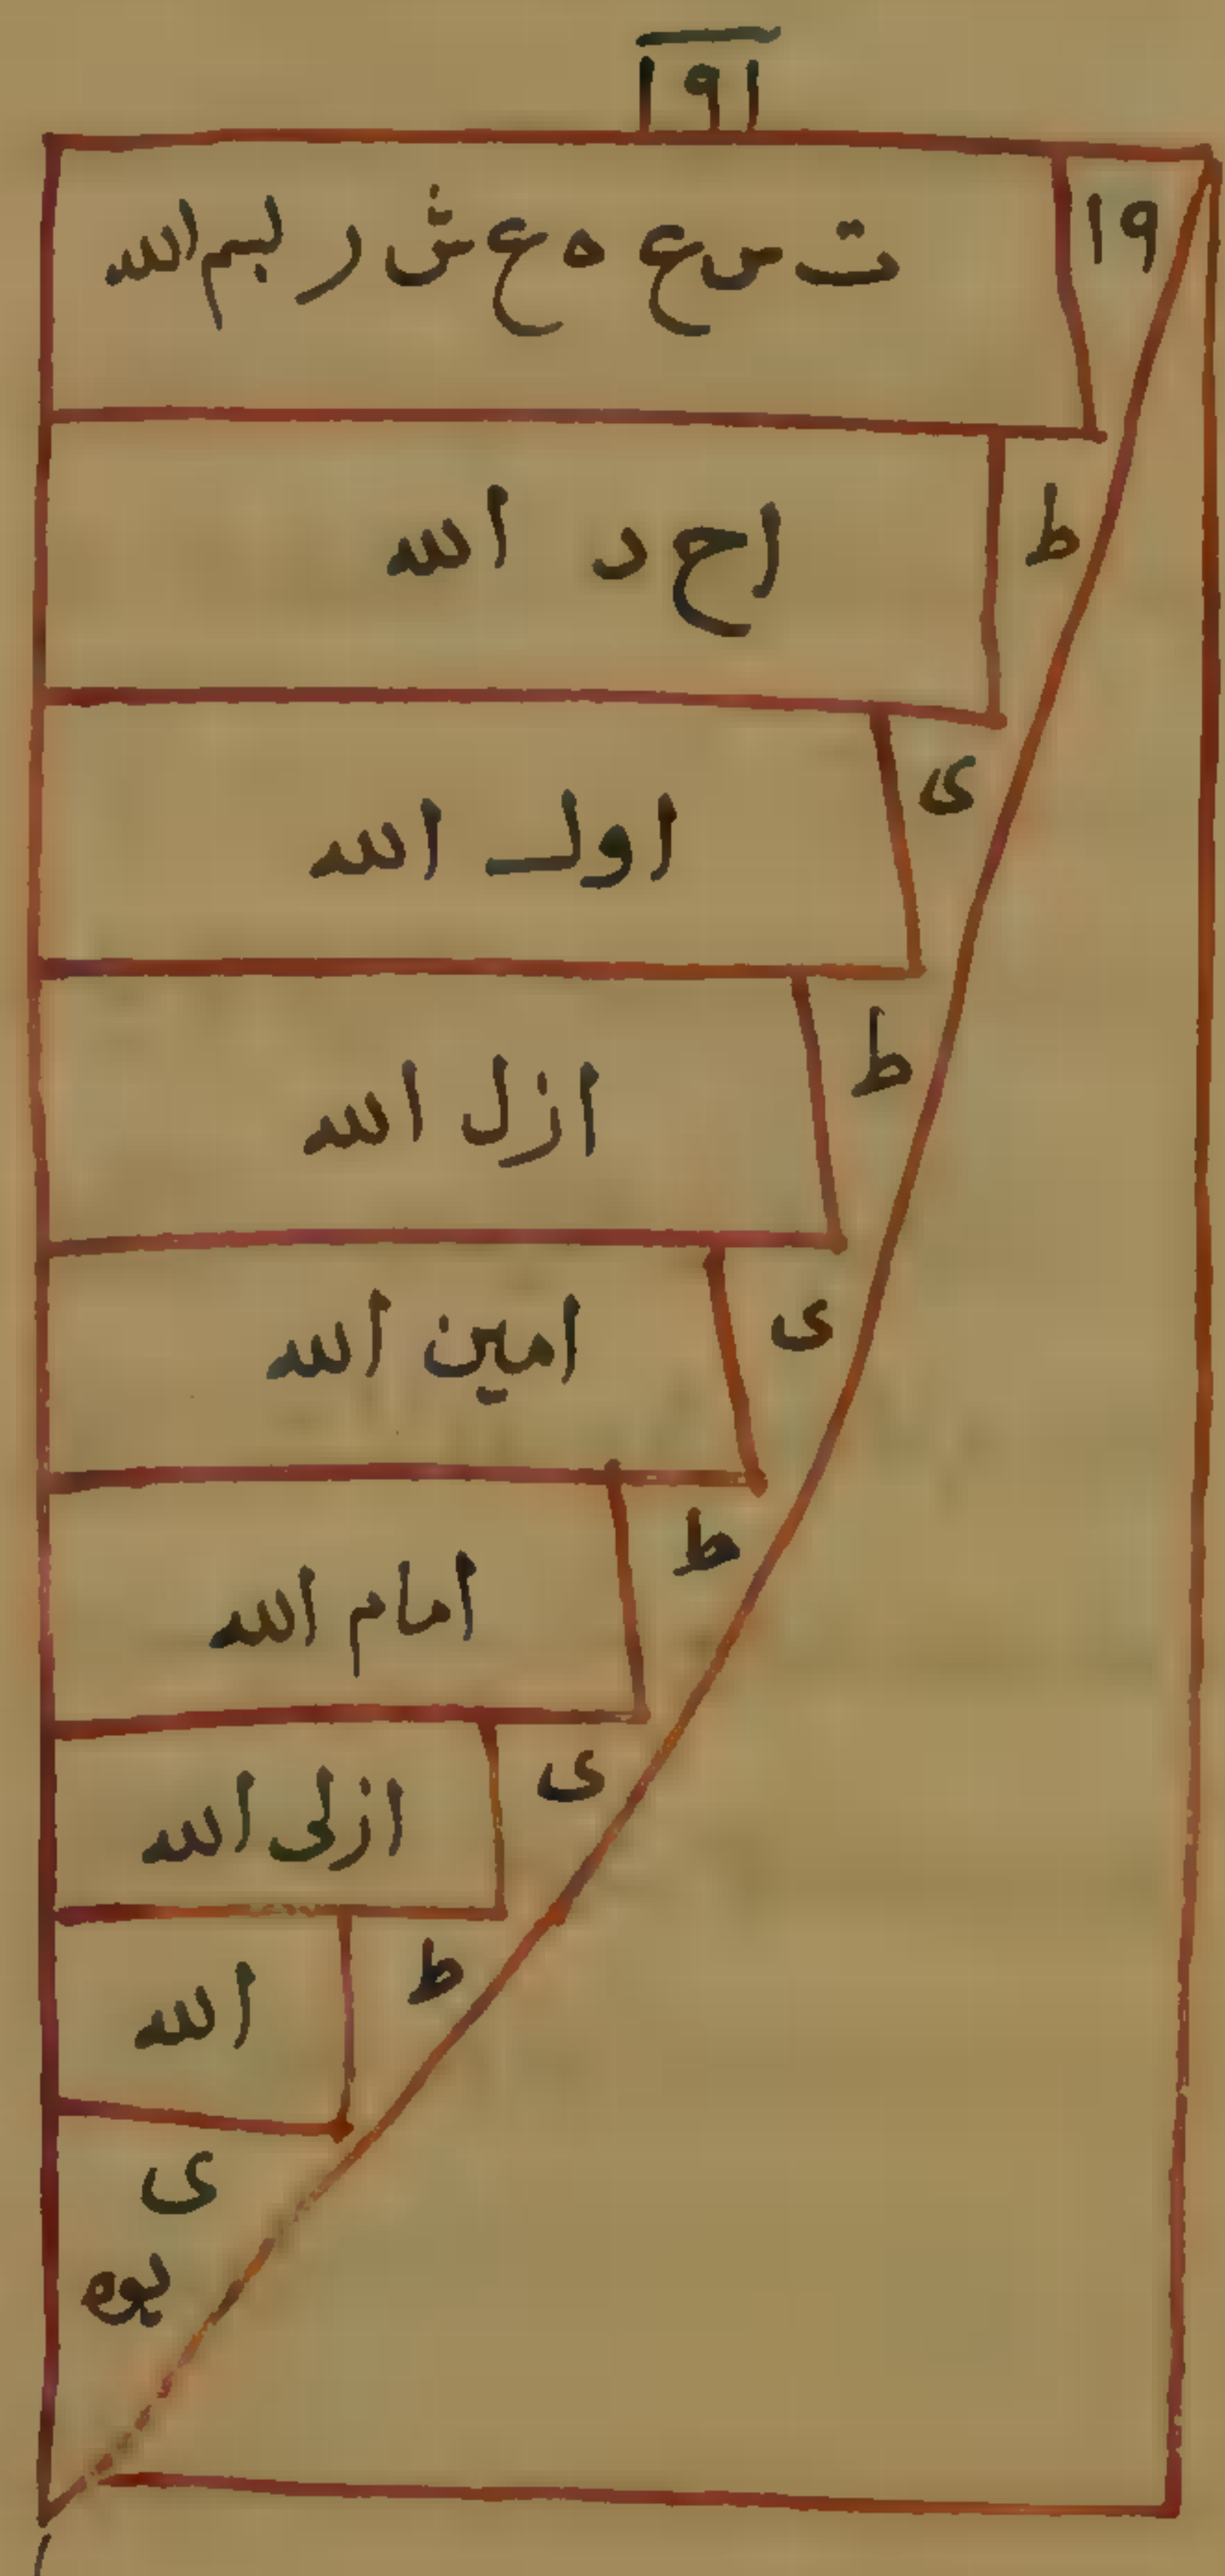 ١٩١
١٩ ت س ع ه ع ش ر بسم الله
ط ا ح د الله
ى اول الله
ط ازل الله
ى امين الله
ط امام الله
ى ازلى الله
ط الله
ى